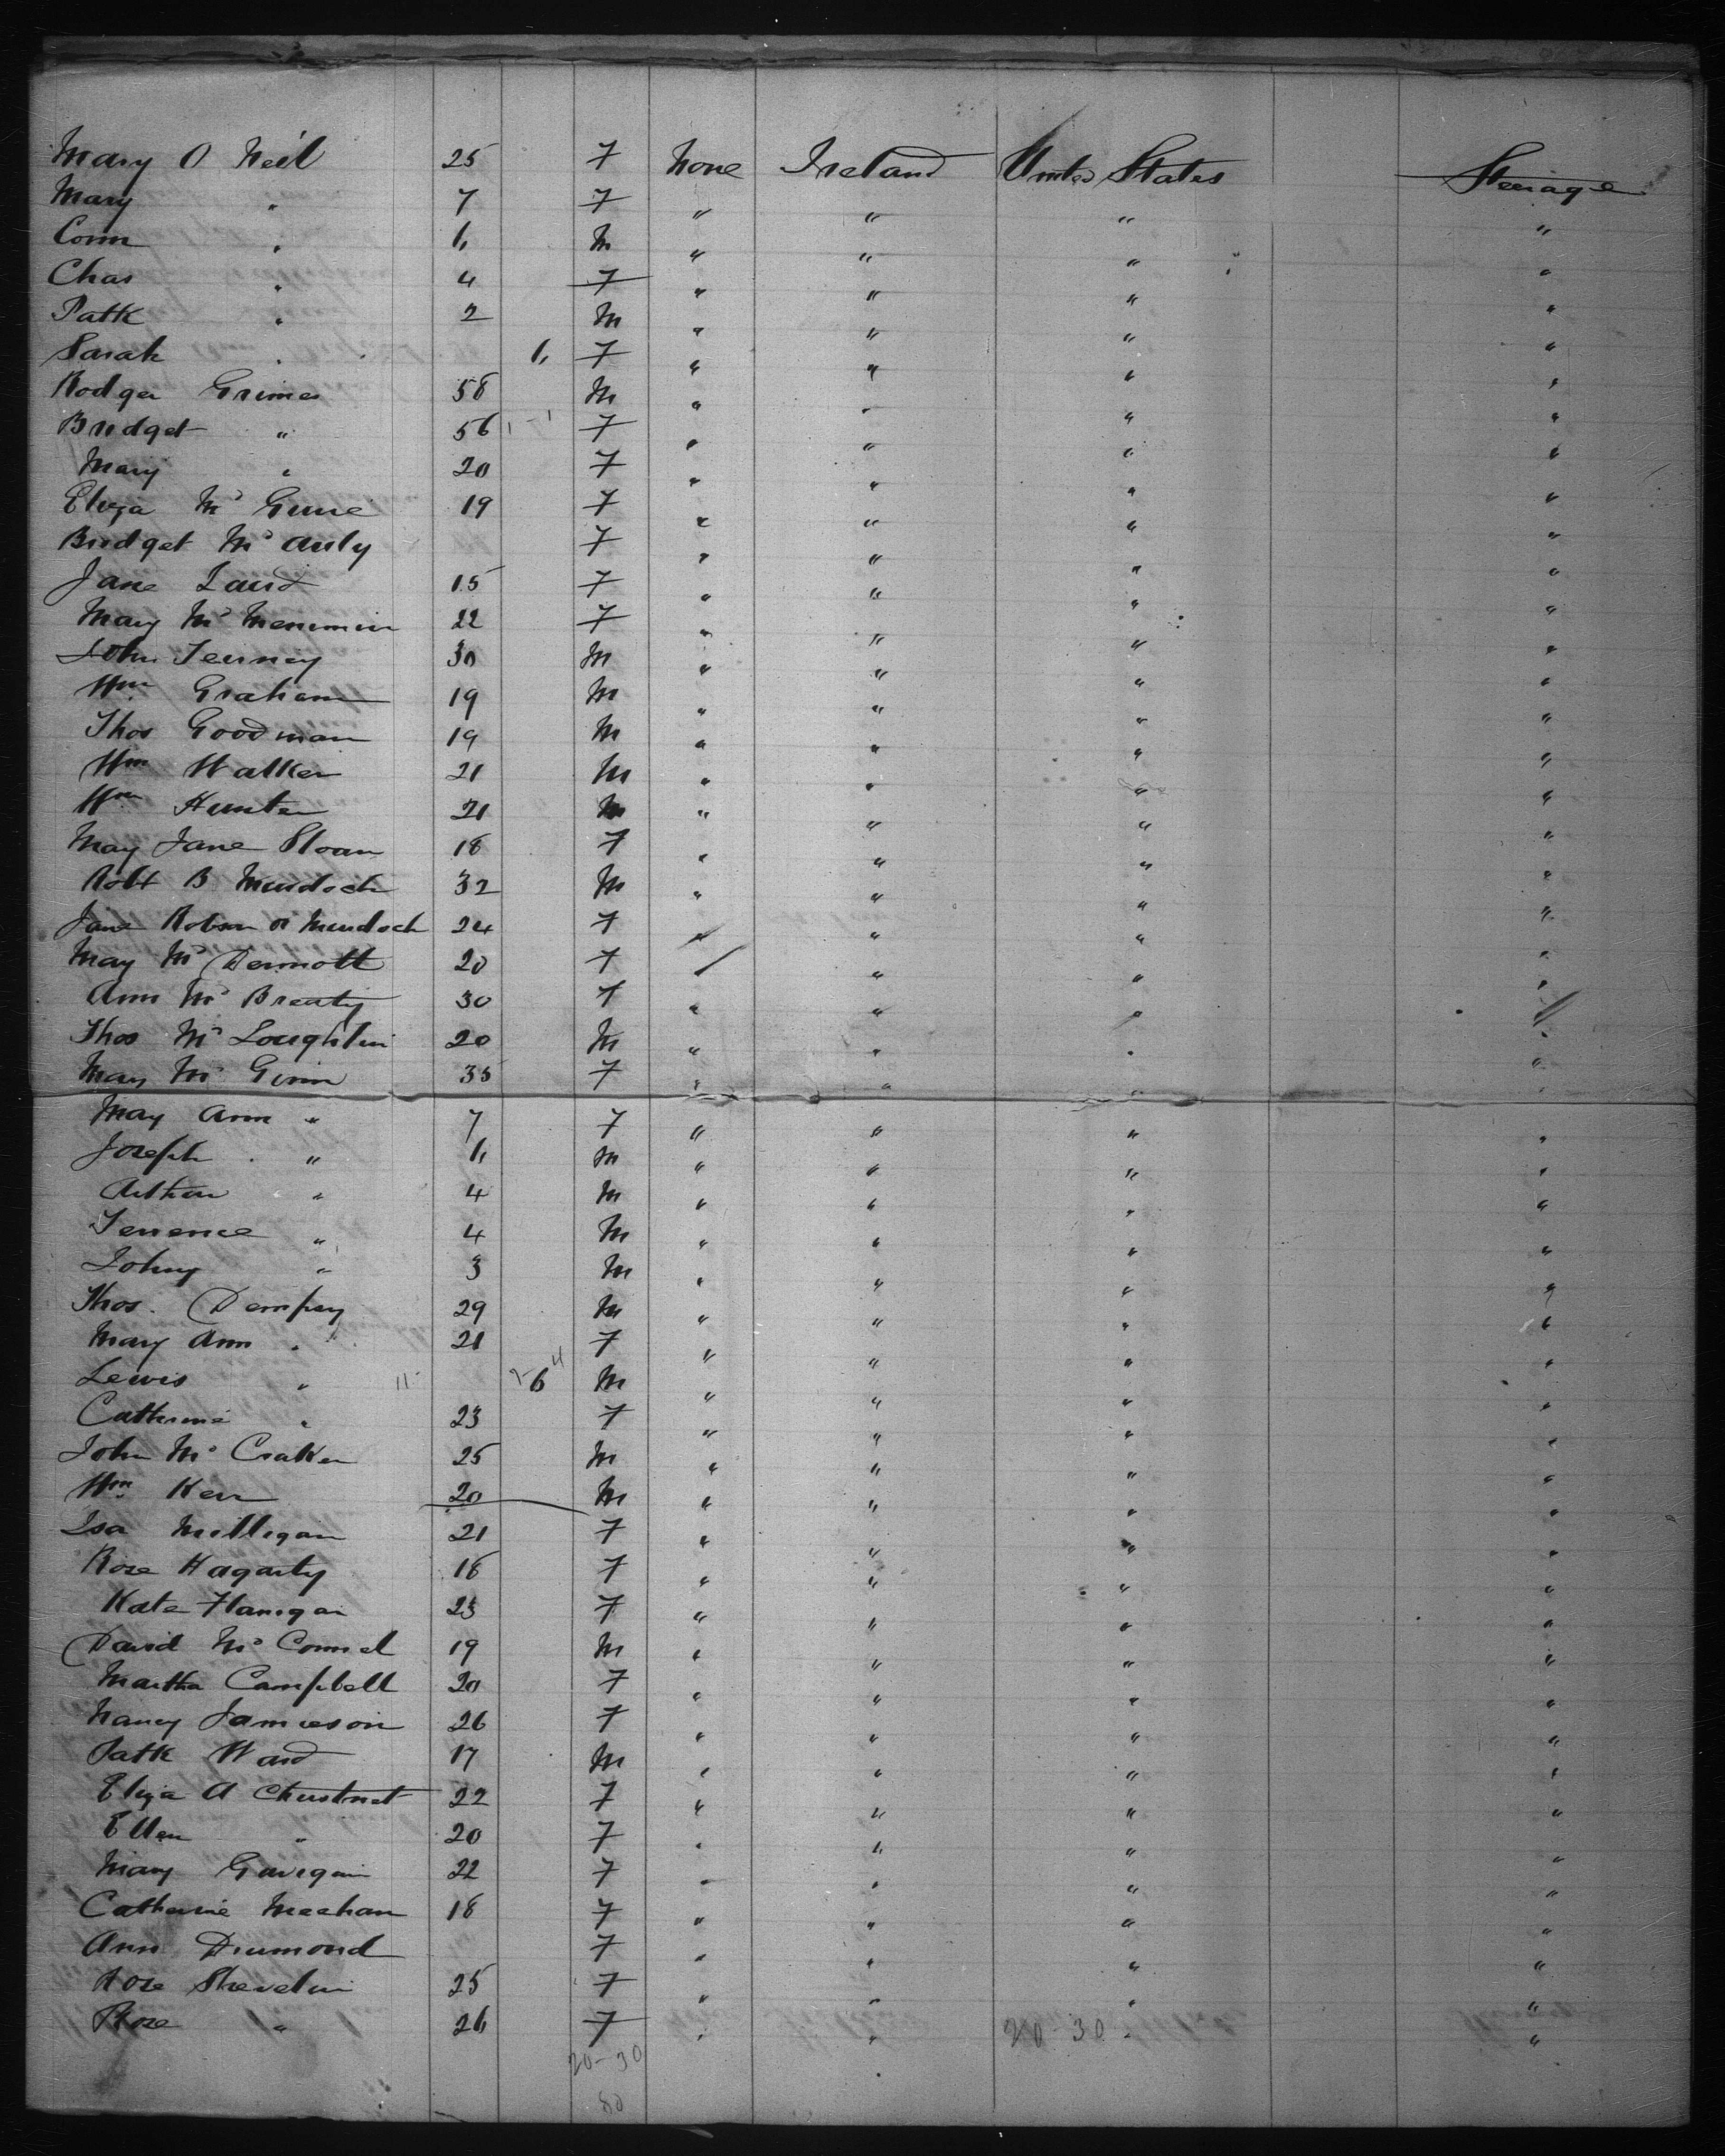 Mary O Neil 25 F None Ireland United States Steerage
Mary " 7 F " " " "
Conn " 6 M " " " "
Chas " 4 F " " " "
Patk " 2 M " " " "
Sarah " 6 F " " " "
Rodger Grimes 58 M " " " "
Bridget " 56 F " " " "
Mary " 20 F " " " "
Eliza Mc 19 F " " " "
Bridget Mc Auly F " " " "
Jane Laird 15 F " " " "
Mary Mc Menimin 22 F " " " "
John 30 M " " " "
Wm Graham 19 M " " " "
Thos Goodman 19 M " " " "
Wm Walker 21 M " " " "
Wm Hunter 21 M " " " "
Mary Jane Sloan 18 F " " " "
Robt B Murdoch 32 M " " " "
Jane Robson or Murdoch 24 F " " " "
Mary Mc Dermott 20 F " " " "
Ann Mc Brearty 30 F " " " "
Thos Mc Loughlin 20 M " " " "
Mary Mc Ginn 35 F " " " "
Mary Ann " 7 F " " " "
Joseph " 6 M " " " "
Arthur " 4 M " " " "
Terrence " 4 M " " " "
Johny " 3 M " " " "
Thos. Dempsey 29 M " " " "
Mary Ann " 21 F " " " "
Lewis " 6 M " " " "
Catherine " 23 F " " " "
John Mc Craken 25 M " " " "
Wm Kerr 20 M " " " "
Isa Milligan 21 F " " " "
Rose Hagarty 18 F " " " "
Kate Flanigan 23 F " " " "
David Mc Connel 19 M " " " "
Martha Campbell 20 F " " " "
Nancy Jamieson 26 F " " " "
Patk Ward 17 M " " " "
Eliza A Chestnut 22 F " " " "
Ellen " 20 F " " " "
Mary Gavigan 22 F " " " "
Catherine Meehan 18 F " " " "
Ann Drumond F " " " "
Rose Shevelin 25 F " " " "
Rose " 26 F " " " "
20-30 20-30
80